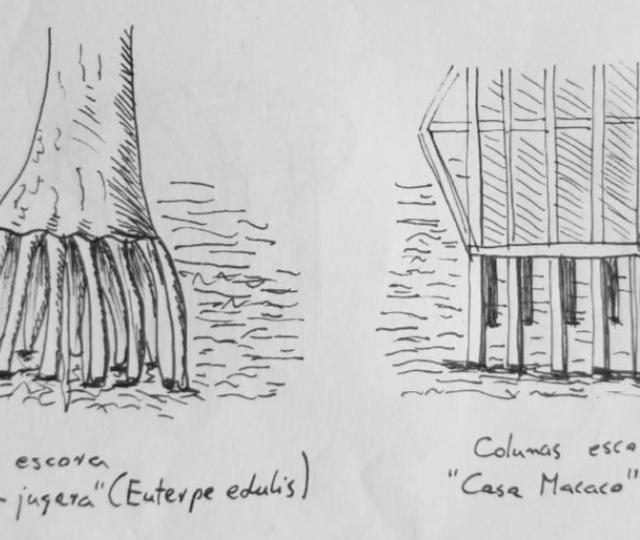 escora
- juçara" (Euterpe edulis)
Colunas esco
"Casa Macaco"